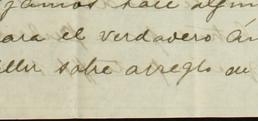 jamos sale algun
ara el verdadero án
eller sobre arreglo de